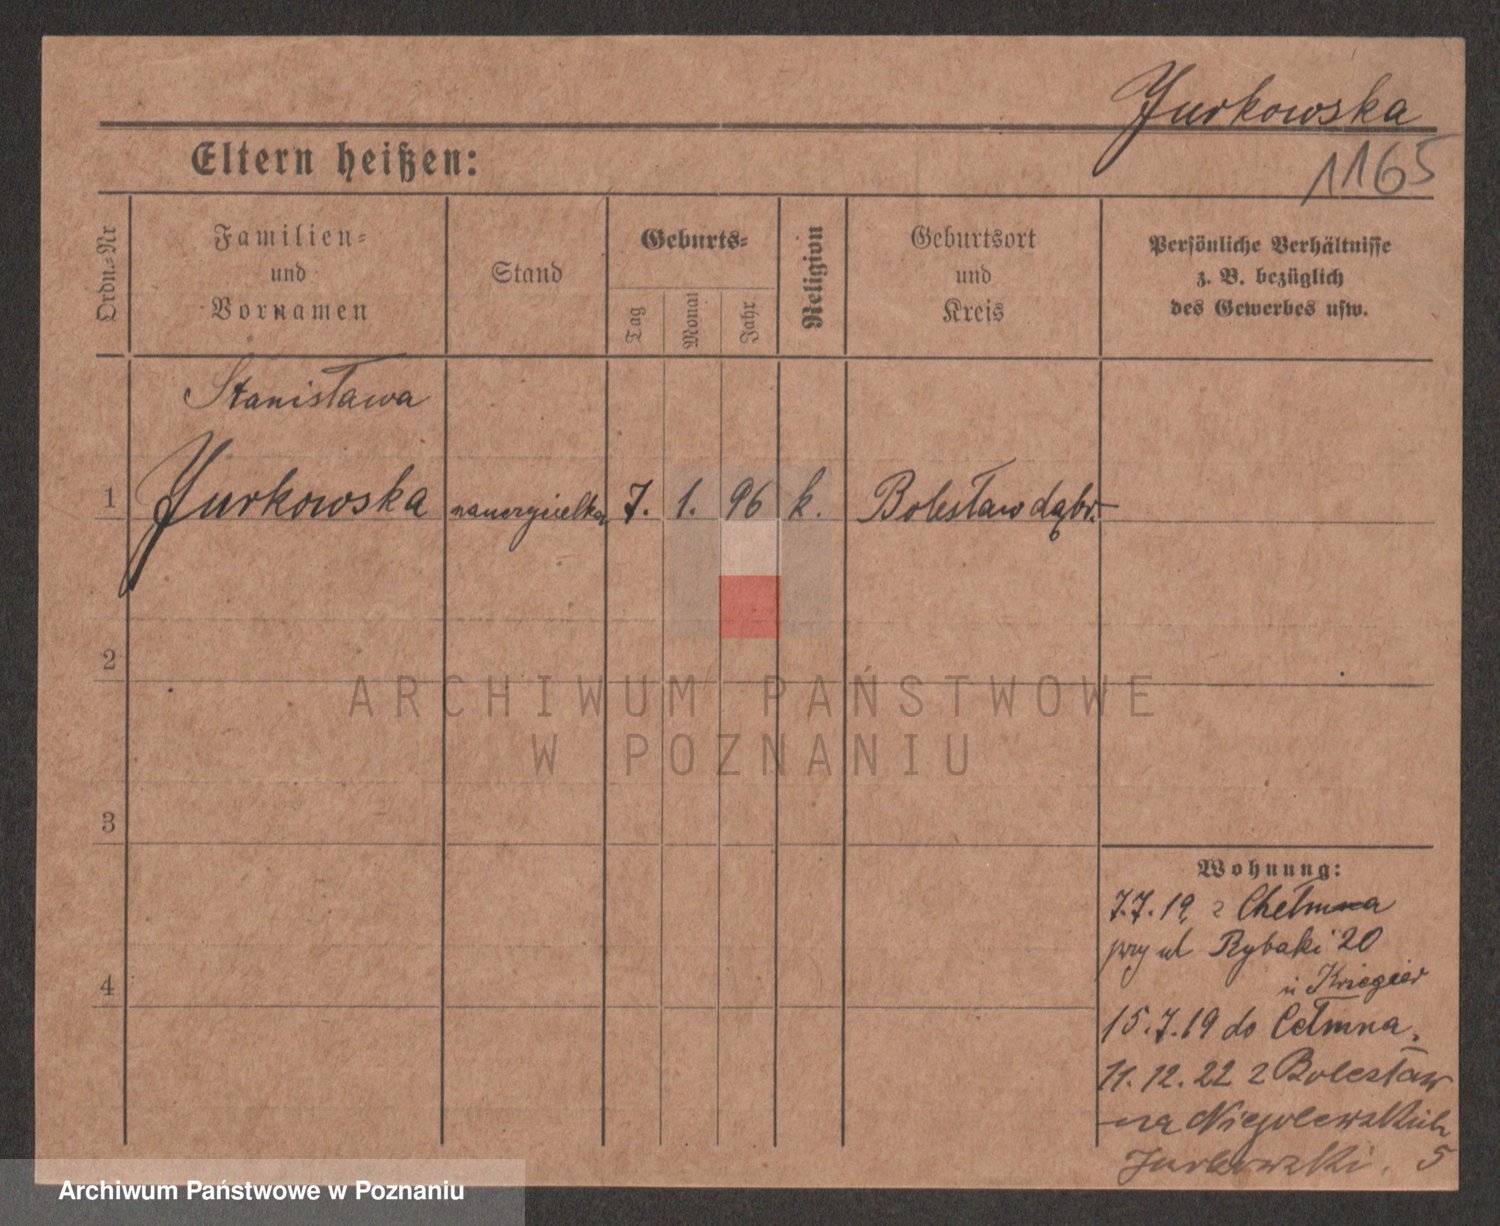 Jurkowska
1165
Eltern heißen:
Ordn.-Nr
Familien-
und
Vornamen
Stand
Geburts-
Tag
Monat
Jahr
Religion
Geburtsort
und
Kreis
Persönliche Verhältnisse
z. B. bezüglich
des Gewerbes usw.
Stanisława
1 Jurkowska nauczycielka 7. 1. 96 k. Bolesław dąbr.
2
ARCHIWUM PAŃSTWOWE
W POZNANIU
3
Wohnung:
7.7.19 z Chełmna
przy ul Rybaki 20
4
u Kriegier
15.7.19 do Cełmna.
11.12.22 z Bolesław
na Niegolewskich
Jurkowski. 5
Archiwum Państwowe w Poznaniu